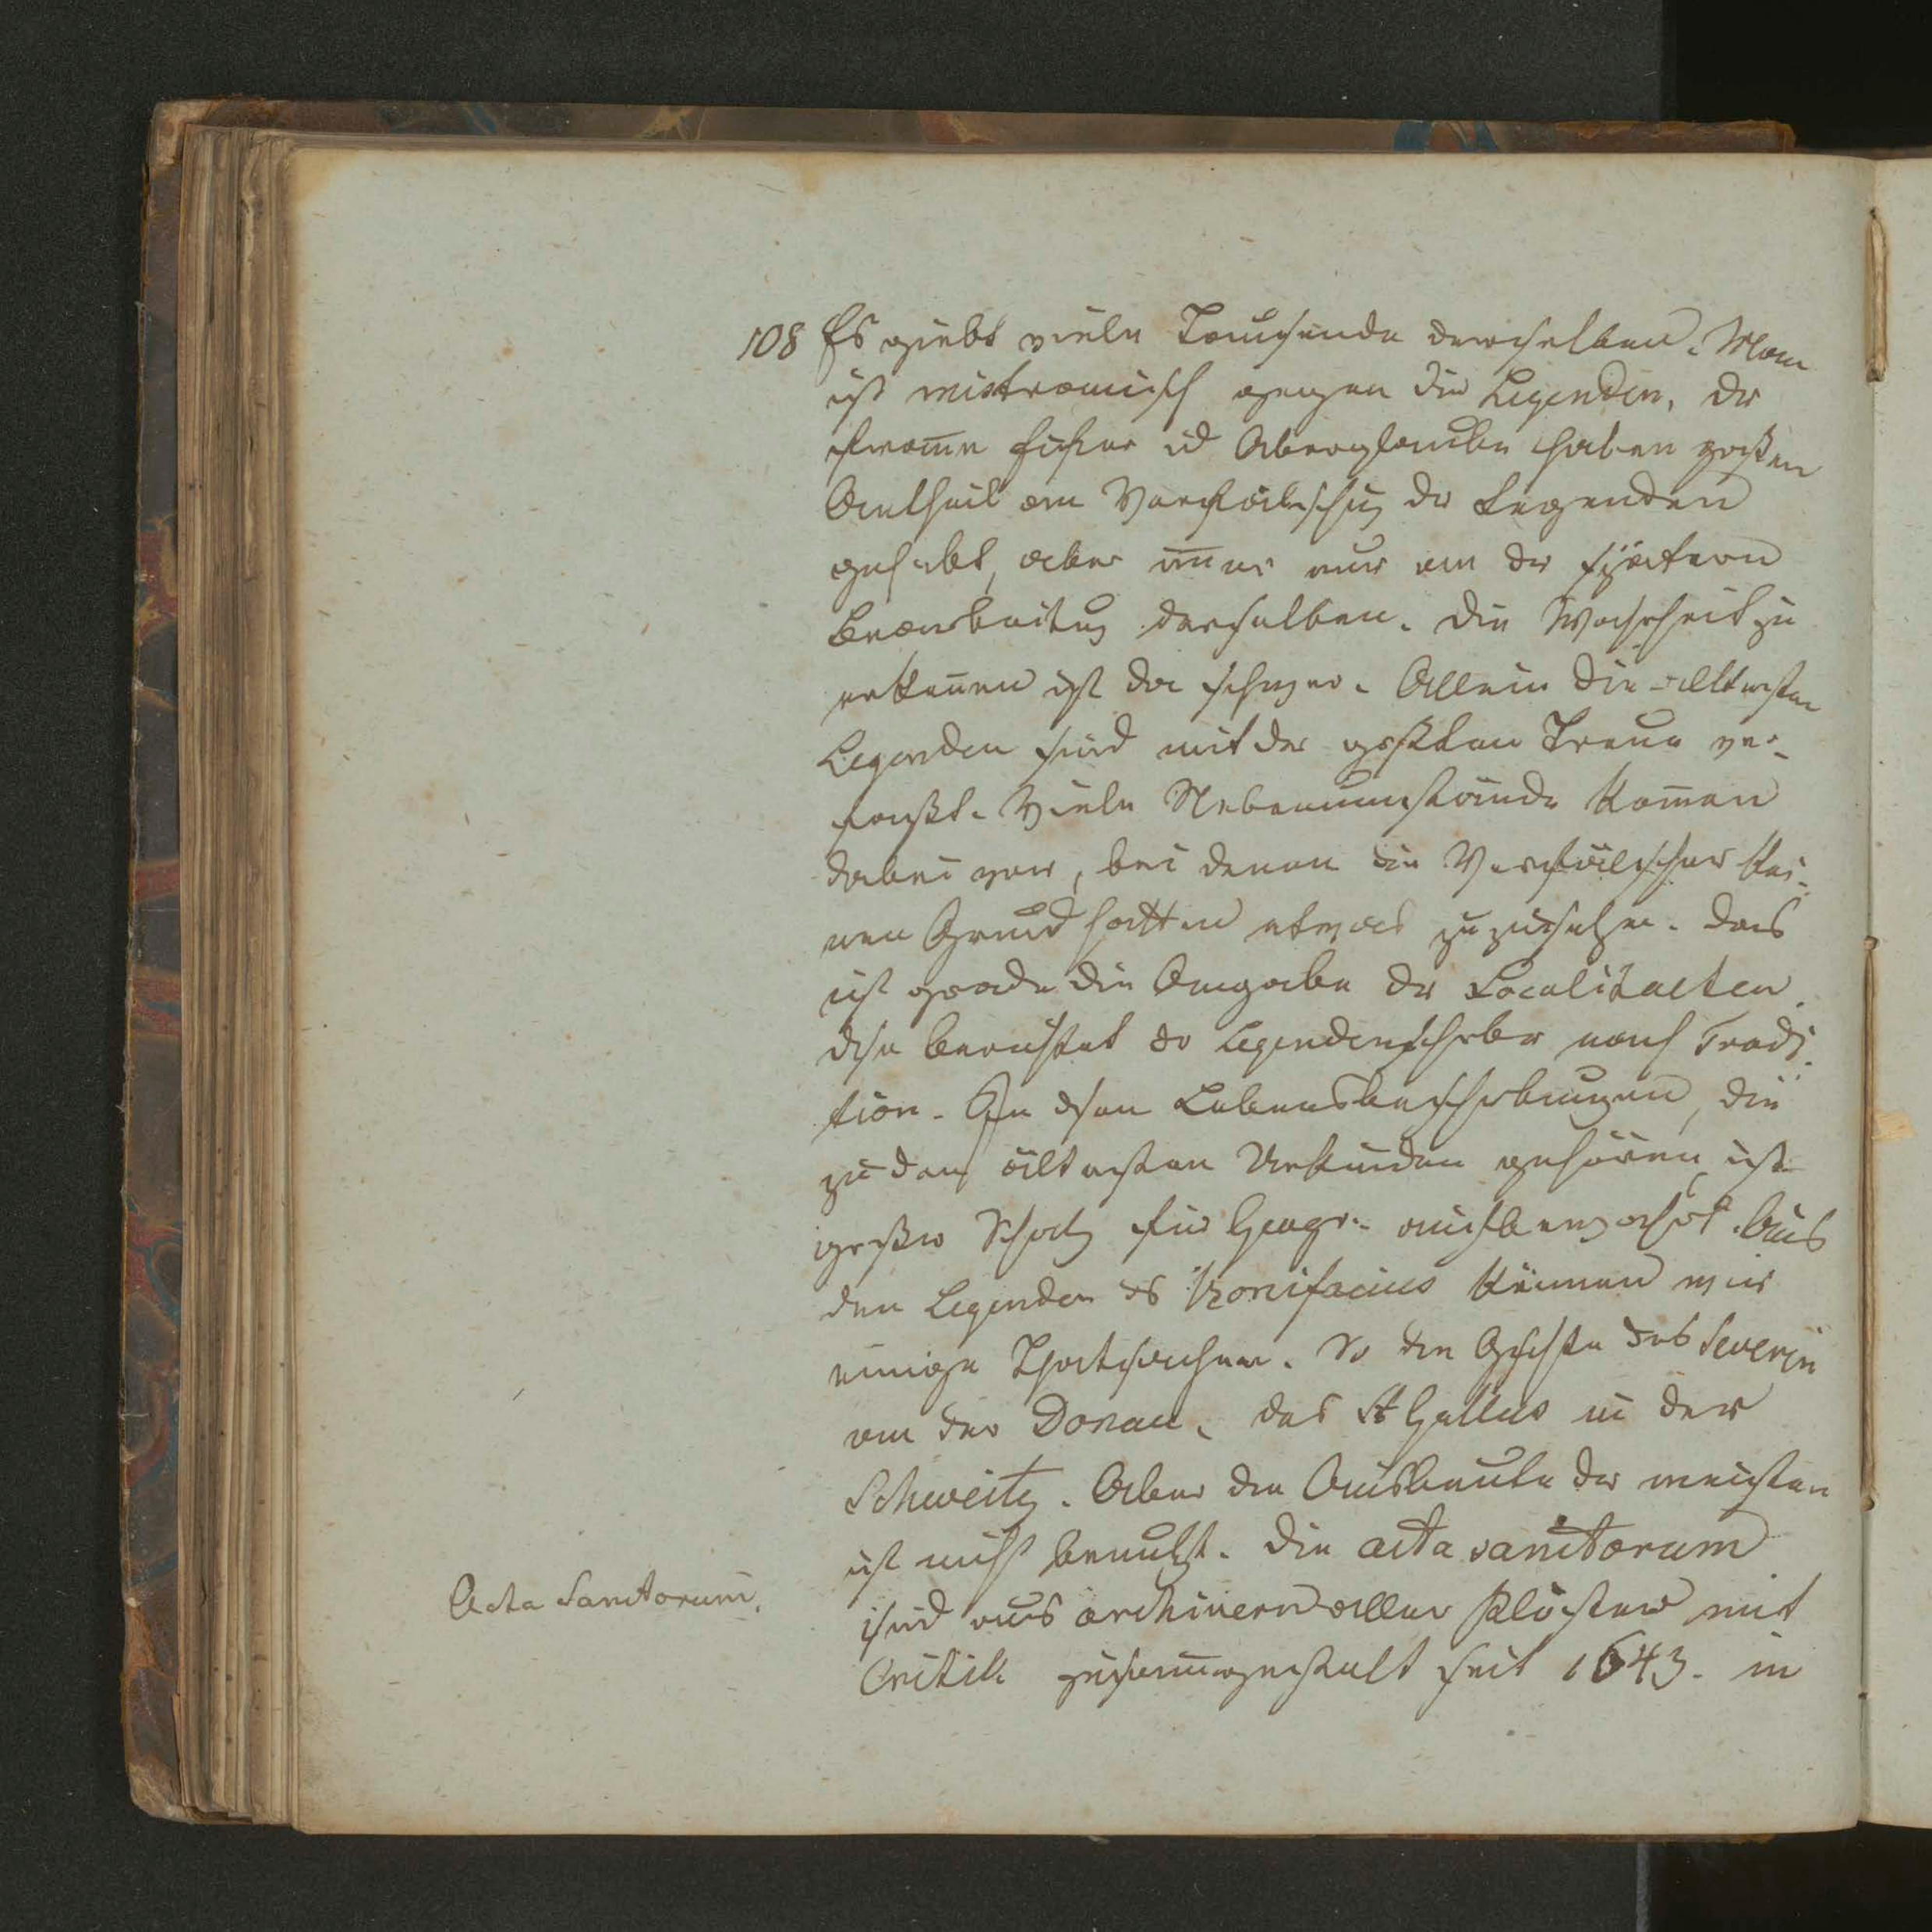 108 Es giebt viele Tausende derselben. Man
ist mistrauisch gegen die Legenden, da
fromme Eifrer ud Aberglaube haben großen
Antheil an Verfälschung der Legenden
gehabt, aber im̄er nur an der spätern
Bearbeitung derselben. Die Wahrheit zu
erken̄en ist da schwer. Allein die ältesten
Legenden sind mit der größten Treue ver-
faßt. Viele Nebenumstände kom̄en
dabei vor, bei denen die Verfälscher kei-
nen Grund hatten etwas zuzusetzen. Das
ist grade die Angabe der Localitaeten.
dse berichtet der Legendenschrbr nach Tradi-
tion. In dsen Lebensbeschrbungen, die
zu den ältesten Urkunden gehören, ist
großer Schatz für Geogr. aufbewahrt. Aus
den Legenden des Bonifacius kennen wir
einige Thatsachen. So die Gschte des Severin
an der Donau, des St Gallus in der
Schweitz. Aber die Ausbeute der meisten
ist nicht benutzt. Die acta sanctorum
Acta Sanctorum.
sind aus Archiven aller Klöster mit
Critik zusam̄gestellt seit 1643. in